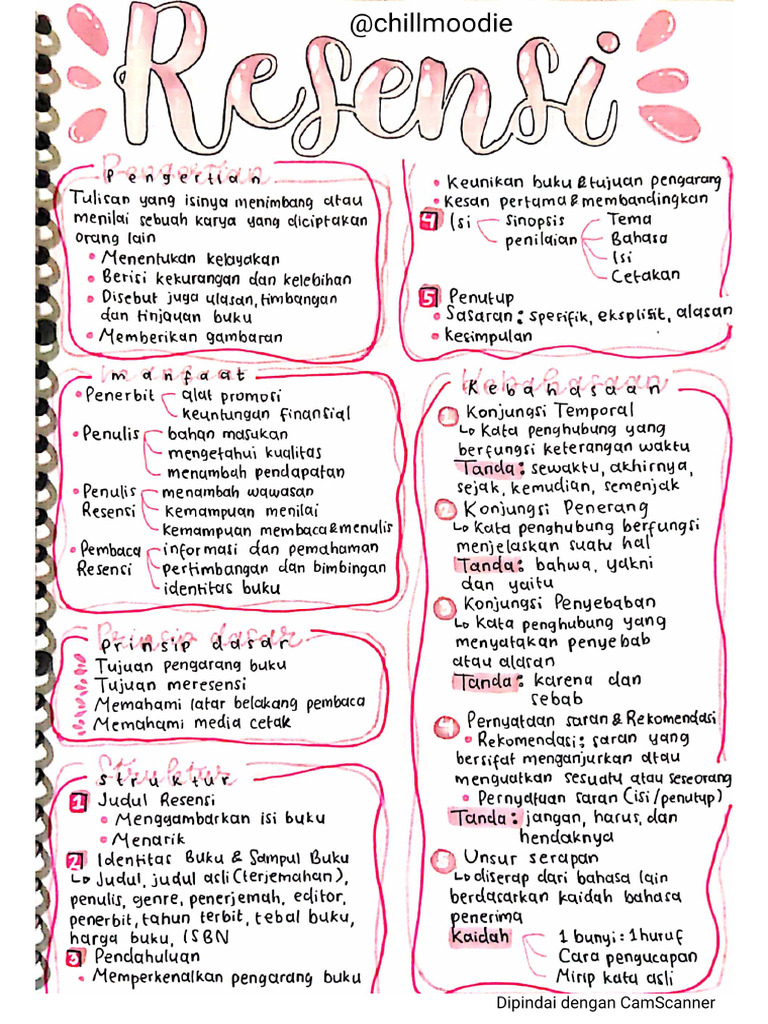 @chillmoodie
Resensi
Pengertian
Tulisan yang isinya menimbang atau
menilai sebuah karya yang diciptakan
orang lain
• Menentukan kelayakan
• Berisi kekurangan dan kelebihan
• Disebut juga ulasan, timbangan
dan tinjauan buku
• Memberikan gambaran
manfaat
• Penerbit
alat promosi
keuntungan finansial
• Penulis
bahan masukan
mengetahui kualitas
menambah pendapatan
• Penulis
Resensi
menambah wawasan
kemampuan menilai
kemampuan membaca & menulis
• Pembaca
Resensi
informasi dan pemahaman
pertimbangan dan bimbingan
identitas buku
prinsip dasar
Tujuan pengarang buku
Tujuan meresensi
Memahami latar belakang pembaca
Memahami media cetak
struktur
1 Judul Resensi
• Menggambarkan isi buku
• Menarik
2 Identitas Buku & Sampul Buku
↳ Judul, judul asli (terjemahan),
penulis, genre, penerjemah, editor,
penerbit, tahun terbit, tebal buku,
harga buku, ISBN
3 Pendahuluan
• Memperkenalkan pengarang buku
• Keunikan buku & tujuan pengarang
• Kesan pertama & membandingkan
4 Isi
sinopsis
penilaian
Tema
Bahasa
Isi
Cetakan
5 Penutup
• Sasaran : spesifik, eksplisit, alasan
• Kesimpulan
Kebahasaan
1 Konjungsi Temporal
↳ Kata penghubung yang
berfungsi keterangan waktu
Tanda : sewaktu, akhirnya,
sejak, kemudian, semenjak
2 Konjungsi Penerang
↳ Kata penghubung berfungsi
menjelaskan suatu hal
Tanda : bahwa, yakni
dan yaitu
3 Konjungsi Penyebaban
↳ Kata penghubung yang
menyatakan penyebab
atau alasan
Tanda : karena dan
sebab
4 Pernyataan saran & Rekomendasi
• Rekomendasi : saran yang
bersifat menganjurkan atau
menguatkan sesuatu atau seseorang
• Pernyataan saran (isi/penutup)
Tanda : jangan, harus, dan
hendaknya
5 Unsur serapan
↳ diserap dari bahasa lain
berdasarkan kaidah bahasa
penerima
kaidah
1 bunyi : 1 huruf
Cara pengucapan
Mirip kata asli
Dipindai dengan CamScanner